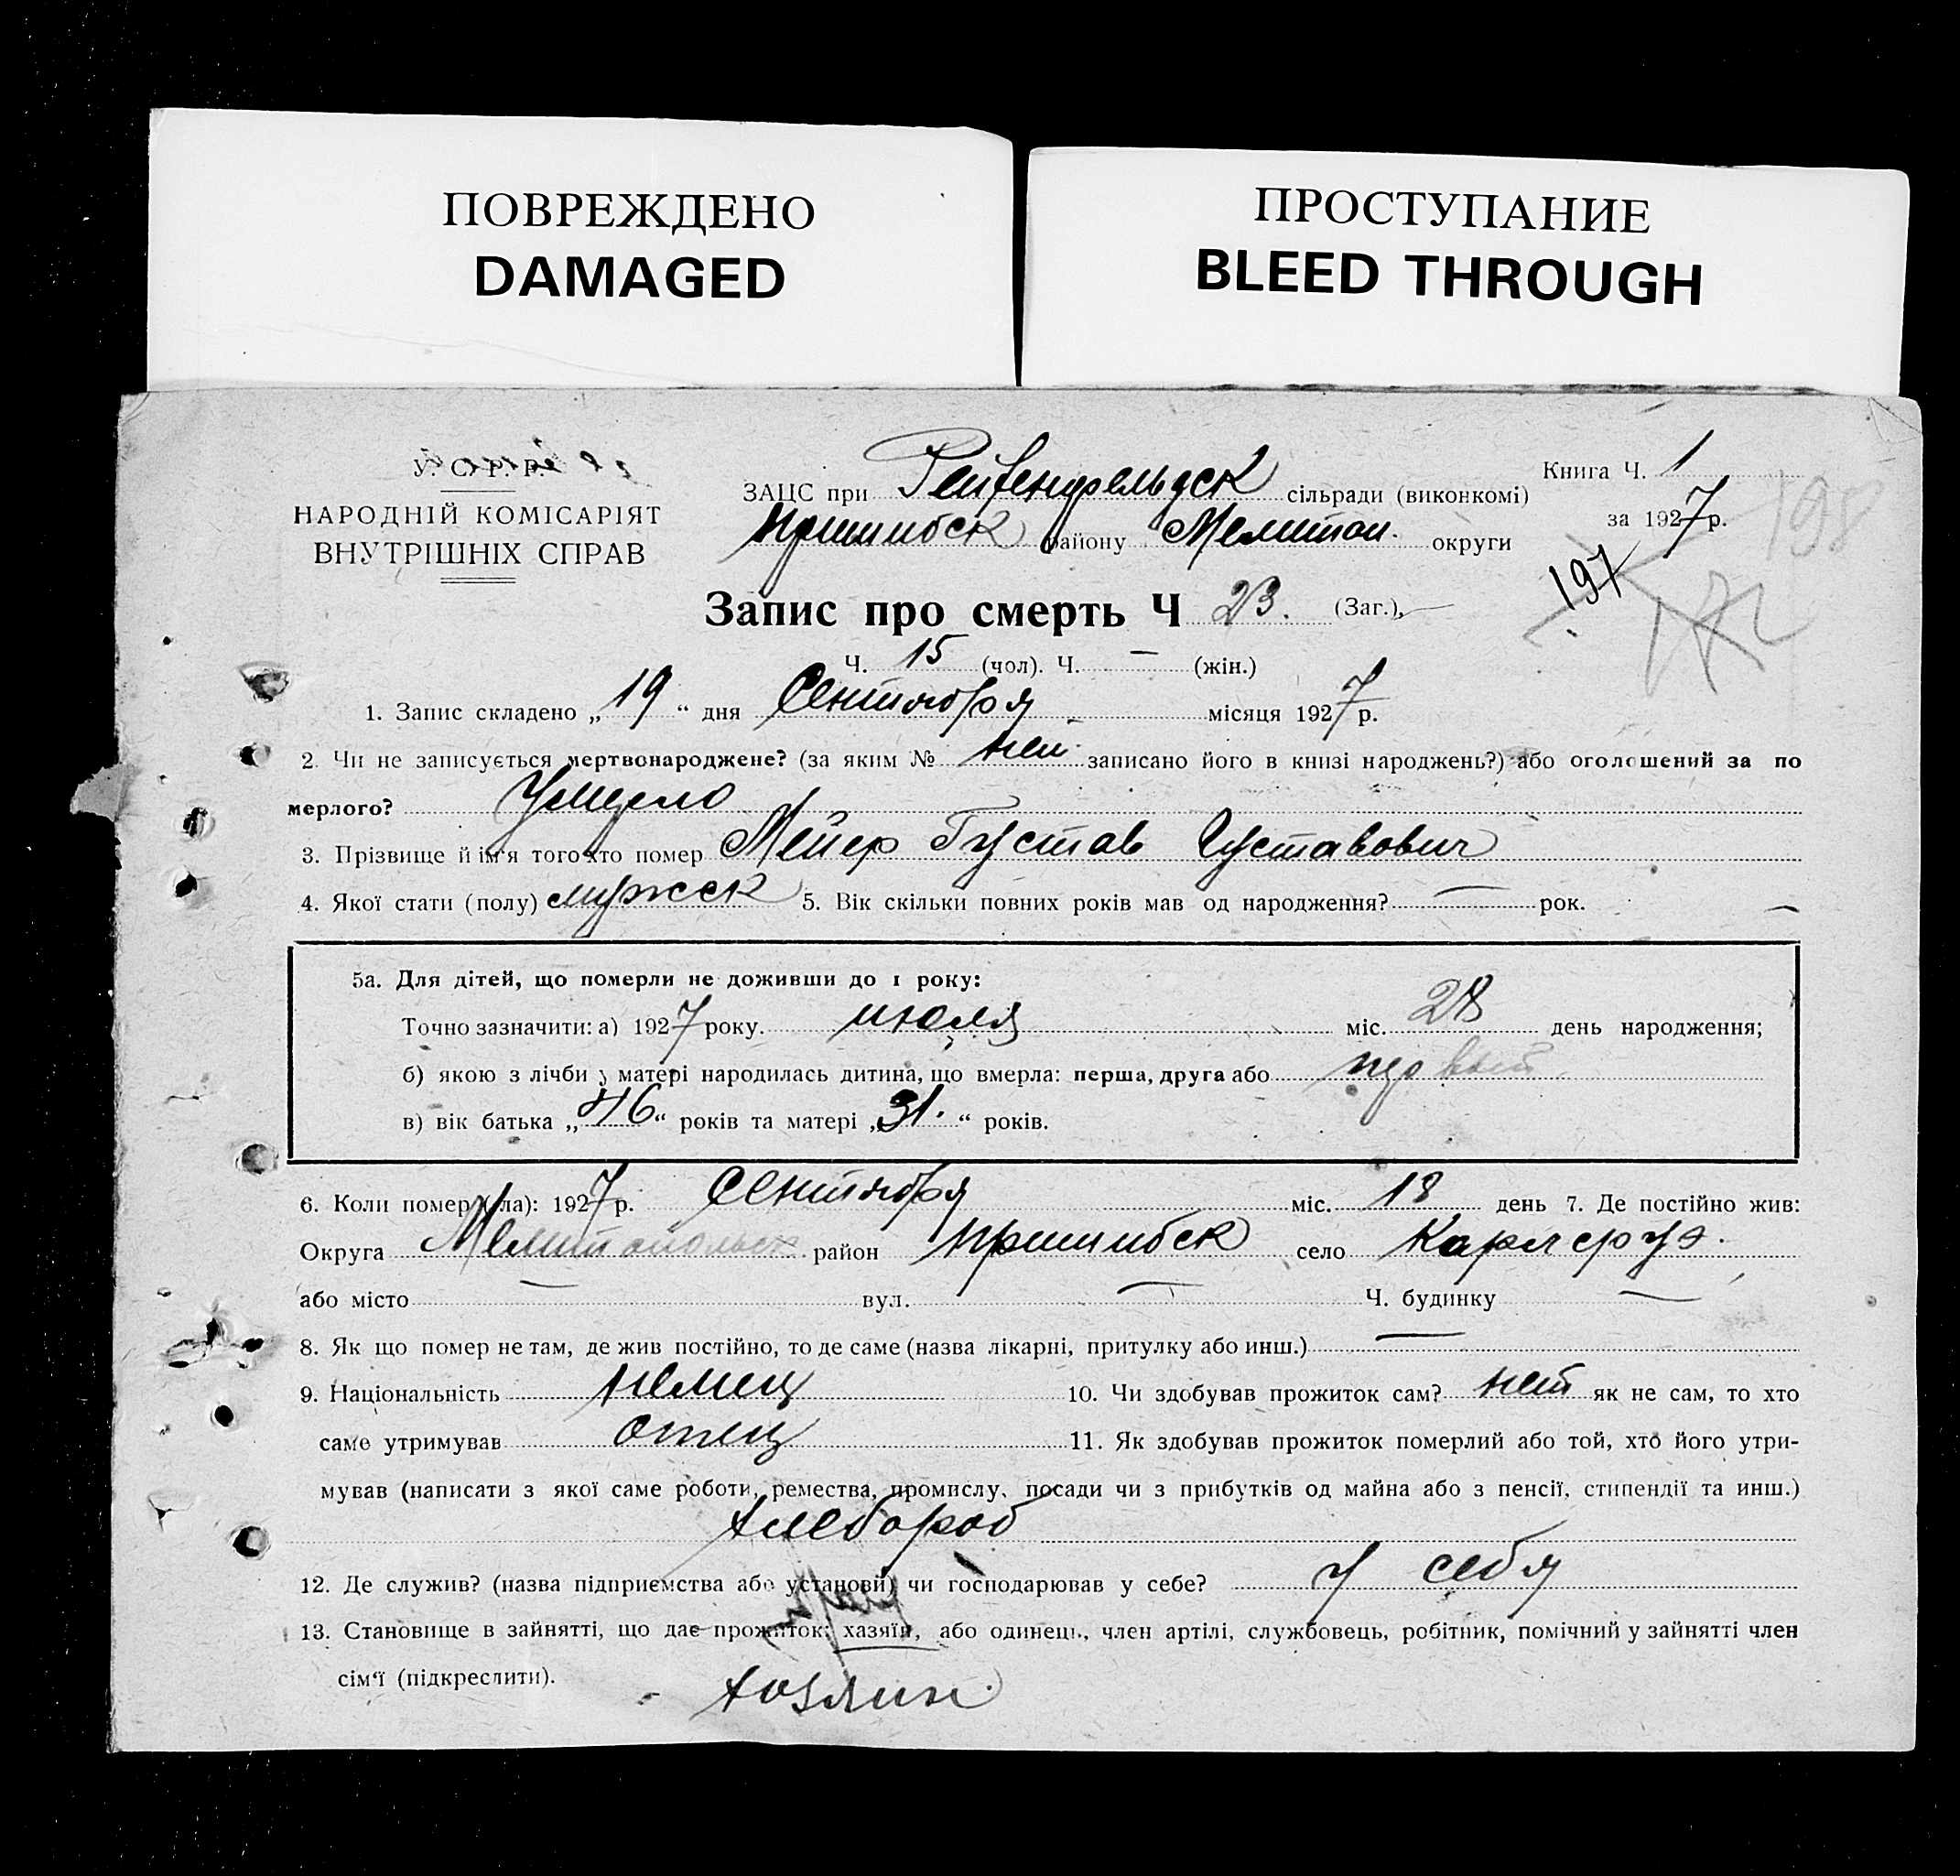 ПОВРЕЖДЕНО
DAMAGED
ПРОСТУПАНИЕ
BLEED THROUGH
У. С. Р. Р.
НАРОДНІЙ КОМІСАРІЯТ
ВНУТРІШНІХ СПРАВ
ЗАЦС при Рейхенфельдск сільради (виконкомі)
Пришибск району Мелитоп. округи
Книга Ч. 1
за 1927 р.
198
197
172
Запис про смерть Ч 23. (Заг.),
Ч. 15 (чол). Ч. — (жін.)
1. Запис складено „19“ дня Сентября місяця 1927 р.
2. Чи не записується мертвонароджене? (за яким № нет записано його в книзі народжень?) або оголошений за по
мерлого? Умерло
3. Прізвище й ім'я того хто помер Мейер Густав Густавович
4. Якої стати (полу) мужск 5. Вік скільки повних років мав од народження? — рок.
5а. Для дітей, що померли не доживши до 1 року:
Точно зазначити: а) 1927 року. июля міс. 28 день народження;
б) якою з лічби у матері народилась дитина, що вмерла: перша, друга або первый
в) вік батька „46“ років та матері „31.“ років.
6. Коли помер (ла): 1927 р. Сентября міс. 18 день 7. Де постійно жив:
Округа Мелитопольск район Пришибск село Карлсруэ.
або місто — вул. — Ч. будинку —
8. Як що помер не там, де жив постійно, то де саме (назва лікарні, притулку або инш.) —
9. Національність немец 10. Чи здобував прожиток сам? нет як не сам, то хто
саме утримував отец 11. Як здобував прожиток померлий або той, хто його утри-
мував (написати з якої саме роботи, ремества, промислу, посади чи з прибутків од майна або з пенсії, стипендії та инш.)
Хлебороб
12. Де служив? (назва підприємства або установи) чи господарював у себе? у себя
13. Становище в зайнятті, що дає прожиток: хазяїн, або одинець, член артілі, службовець, робітник, помічний у зайнятті член
сім'ї (підкреслити). Хозяин.